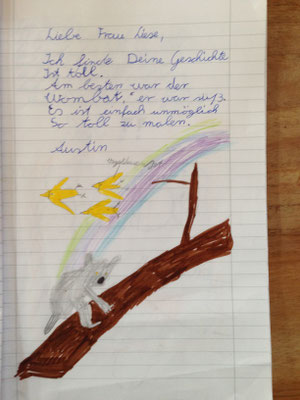 Liebe Frau Liese,
Ich finde Deine Geschichte
Ist toll.
Am besten war der
Wombat." er war süß.
Es ist einfach unmöglich
So toll zu malen.
Austin